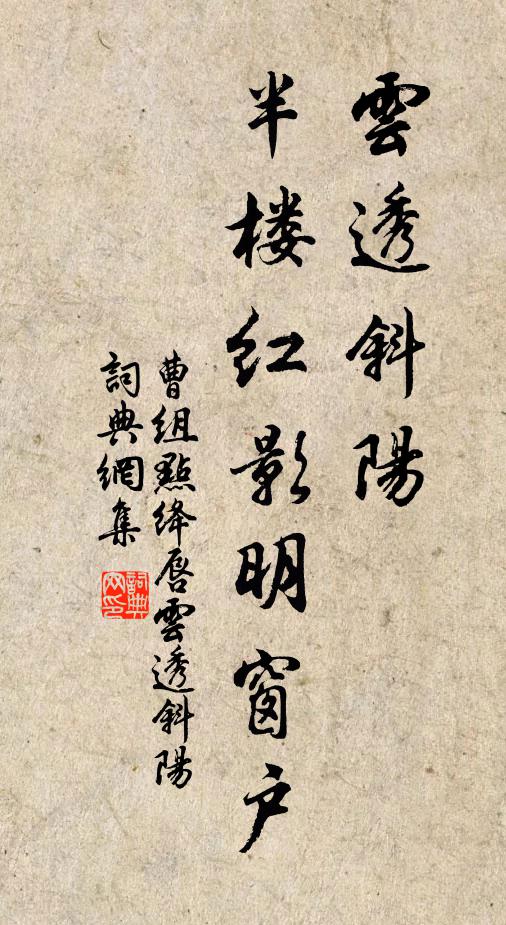 雲透斜陽
半楼红影明窗户
曹组點绛唇雲透斜陽
詞典網集
詞典
网印